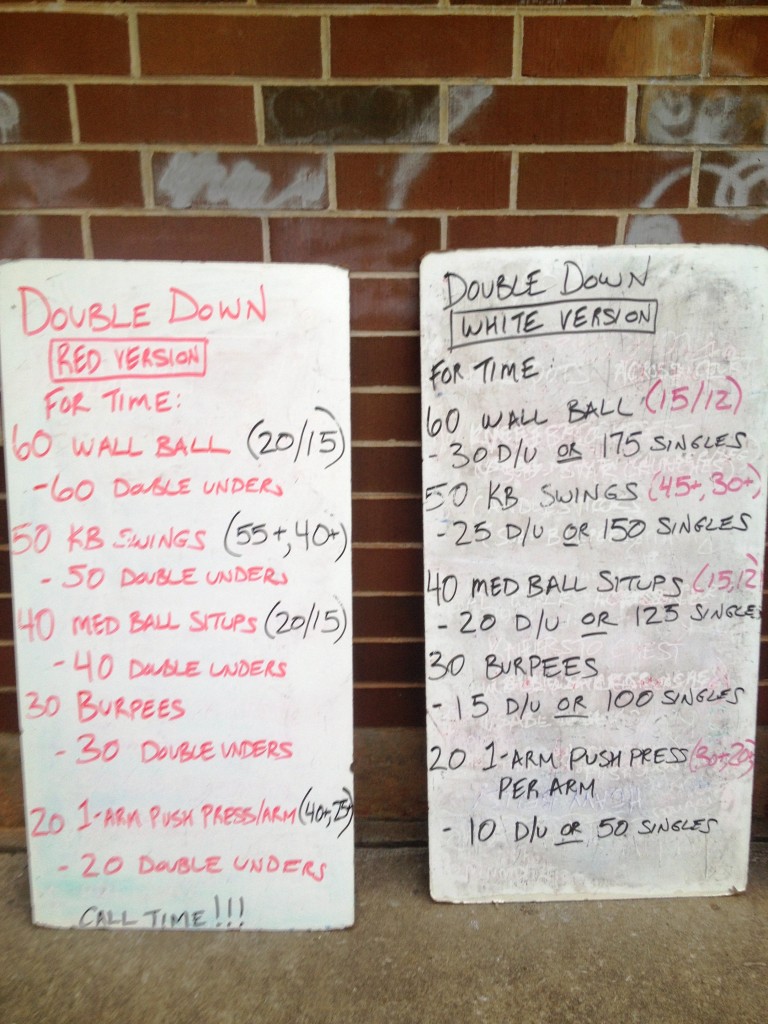 DOUBLE DOWN
RED VERSION
FOR TIME:
60 WALL BALL (20/15)
- 60 DOUBLE UNDERS
50 KB SWINGS (55+, 40+)
- 50 DOUBLE UNDERS
40 MED BALL SITUPS (20/15)
- 40 DOUBLE UNDERS
30 BURPEES
- 30 DOUBLE UNDERS
20 1-ARM PUSH PRESS/ARM (40+, 25+)
- 20 DOUBLE UNDERS
CALL TIME!!!
DOUBLE DOWN
WHITE VERSION
FOR TIME:
60 WALL BALL (15/12)
- 30 D/U OR 175 SINGLES
50 KB SWINGS (45+, 30+)
- 25 D/U OR 150 SINGLES
40 MED BALL SITUPS (15, 12)
- 20 D/U OR 125 SINGLES
30 BURPEES
- 15 D/U OR 100 SINGLES
20 1-ARM PUSH PRESS (30+, 20+)
PER ARM
- 10 D/U OR 50 SINGLES